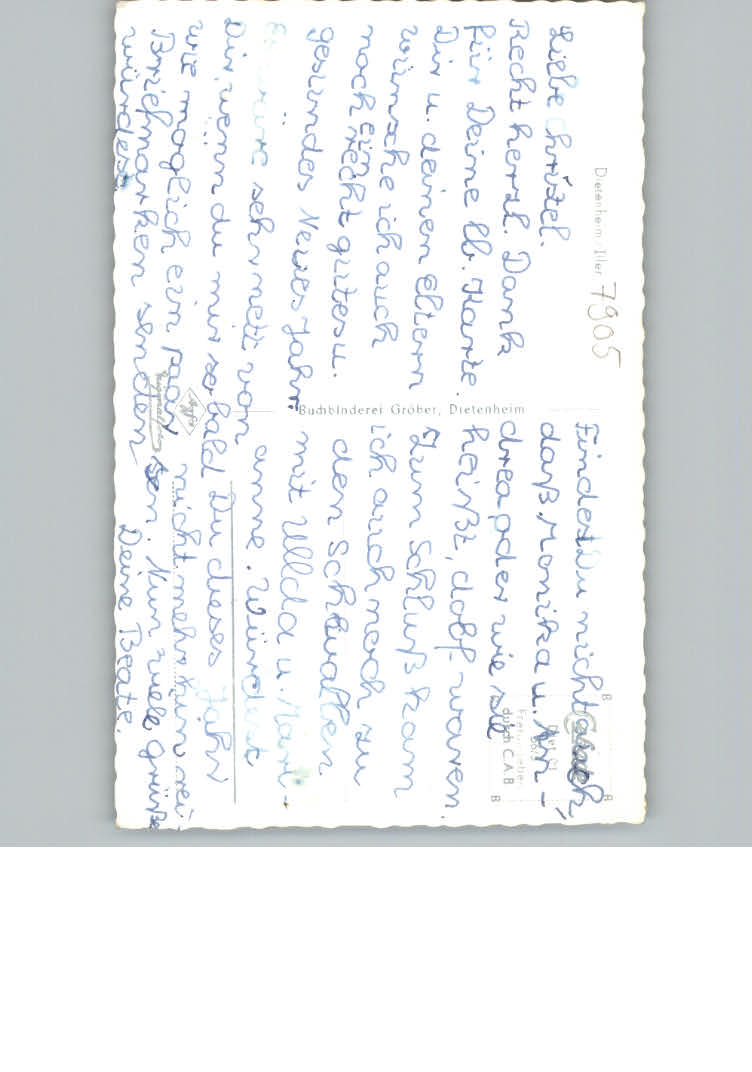 Dietenheim Iller 7905
Liebe Christel.
Recht herzl. Dank
für Deine lb. Karte.
Dir u. deinen Eltern
wünsche ich auch
noch ein
recht gutes u.
gesundes Neues Jahr.
Es wäre sehr nett von
Dir, wenn du mir so bald
wie möglich ein paar
Briefmarken senden
würdest.
Buchbinderei Gröber, Dietenheim
Agfa
Findest Du nicht auch,
daß Monika u. An-
drea oder wie sie
heißt, doof waren.
Zum Schluß kam
ich auch noch zu
den Schwalben
mit Ulla u. Mari-
anne. Würdest
Du dieses Jahr
nicht mehr
sen. Nun viele Grüße
Deine Beate.
durch C.A.B
B
B
B
B